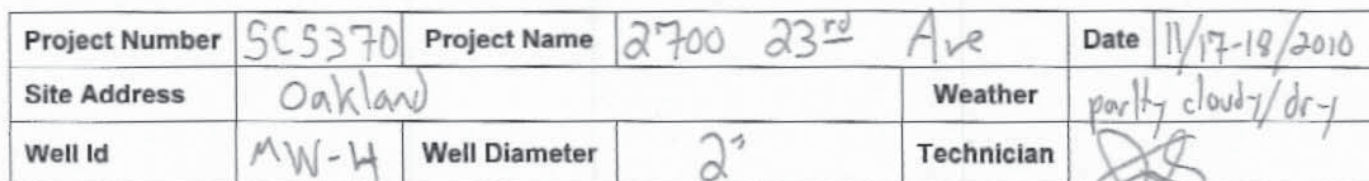 Project Number SCS370 Project Name 2700 23rd Ave Date 11/17-18/2010
Site Address Oakland Weather parlty cloudy/dry
Well Id MW-4 Well Diameter 2" Technician